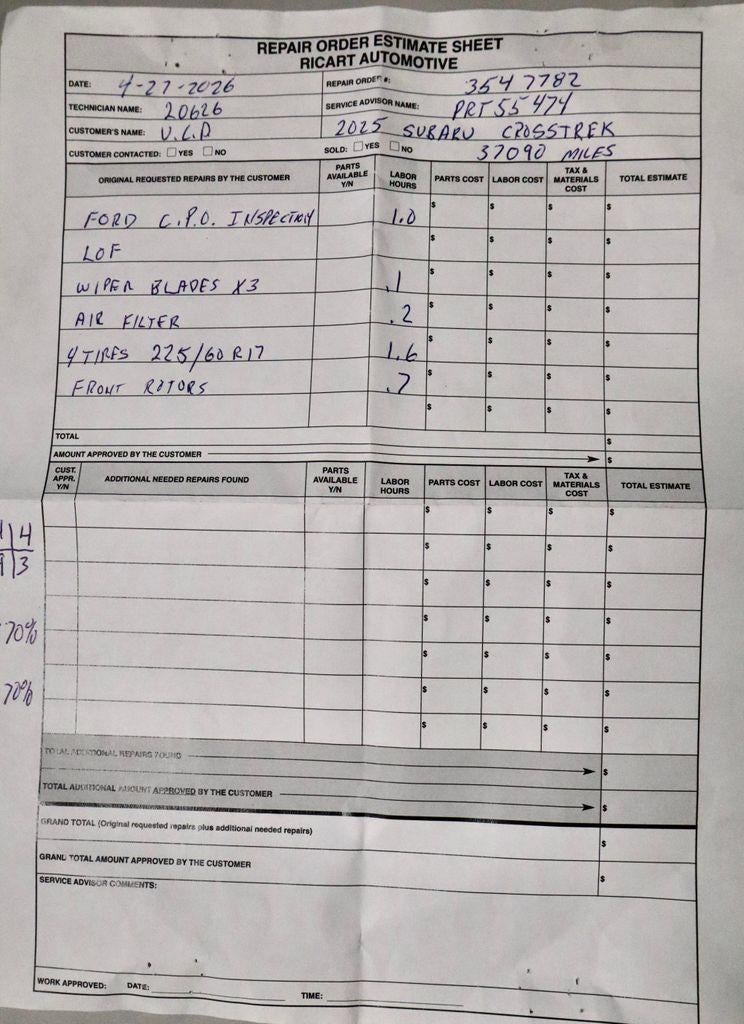 REPAIR ORDER ESTIMATE SHEET
RICART AUTOMOTIVE
DATE: 4-27-2026 REPAIR ORDER #: 3547782
TECHNICIAN NAME: 20626 SERVICE ADVISOR NAME: PRT55474
CUSTOMER'S NAME: V.C.D 2025 SUBARU CROSSTREK
CUSTOMER CONTACTED: YES NO SOLD: YES NO 37090 MILES
ORIGINAL REQUESTED REPAIRS BY THE CUSTOMER PARTS AVAILABLE Y/N LABOR HOURS PARTS COST LABOR COST TAX & MATERIALS COST TOTAL ESTIMATE
FORD C.P.O. INSPECTION 1.0 $ $ $ $
LOF $ $ $ $
WIPER BLADES X3 .1 $ $ $ $
AIR FILTER .2 $ $ $ $
4 TIRES 225/60 R17 1.6 $ $ $ $
FRONT ROTORS .7 $ $ $ $
$ $ $ $
TOTAL $
AMOUNT APPROVED BY THE CUSTOMER $
CUST. APPR. Y/N ADDITIONAL NEEDED REPAIRS FOUND PARTS AVAILABLE Y/N LABOR HOURS PARTS COST LABOR COST TAX & MATERIALS COST TOTAL ESTIMATE
$ $ $ $
4 $ $ $ $
3 $ $ $ $
70% $ $ $ $
$ $ $ $
70% $ $ $ $
$ $ $ $
TOTAL ADDITIONAL REPAIRS FOUND $
TOTAL ADDITIONAL AMOUNT APPROVED BY THE CUSTOMER $
GRAND TOTAL (Original requested repairs plus additional needed repairs) $
GRAND TOTAL AMOUNT APPROVED BY THE CUSTOMER $
SERVICE ADVISOR COMMENTS:
WORK APPROVED: DATE: TIME: